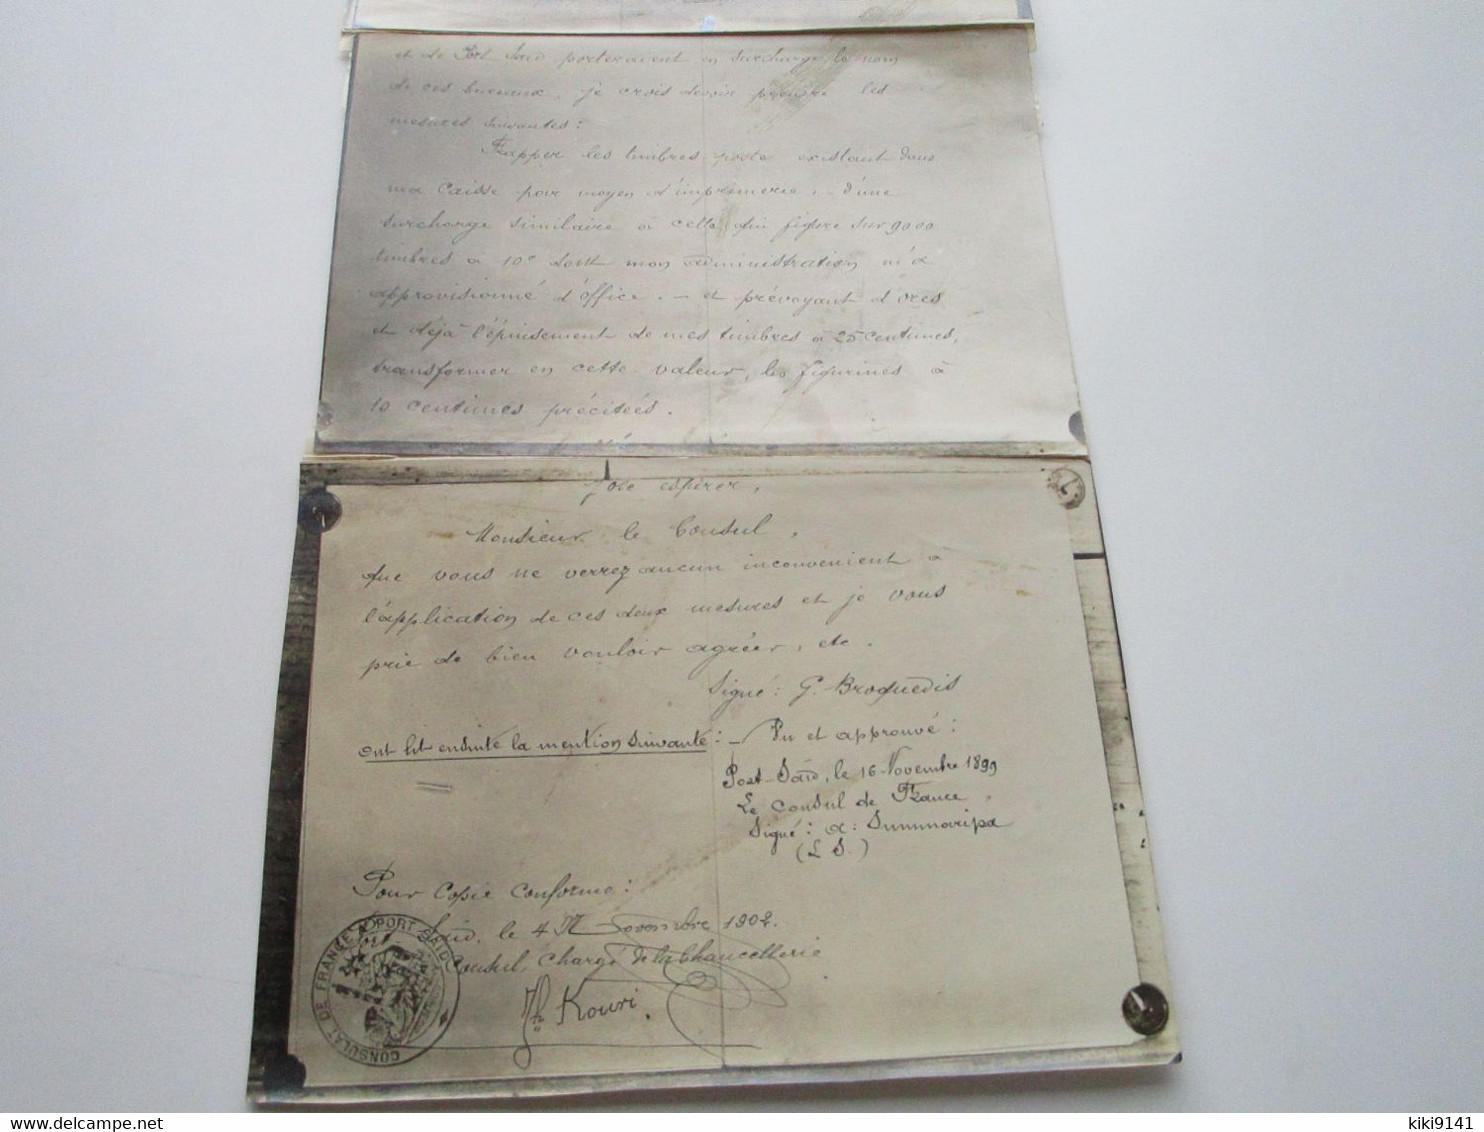 et de Port Saïd porteraient en surcharge le nom
de ces bureaux, je crois devoir prendre les
mesures suivantes :
Frapper les timbres poste existant dans
ma caisse par moyen d'imprimerie, – d'une
surcharge similaire à cette qui figure sur 9000
timbres à 10c dont mon administration m'a
approvisionné d'office. – et prévoyant d'ores
et déjà l'épuisement de mes timbres à 25 centimes,
transformer en cette valeur, les figurines à
10 centimes précitées.
J'ose espérer,
Monsieur le Consul,
que vous ne verrez aucun inconvenient à
l'application de ces deux mesures et je vous
prie de bien vouloir agréer, etc.
Signé : G. Broquedis
ont lit ensuite la mention suivante : – Vu et approuvé :
Port-Saïd, le 16 Novembre 1899
Le Consul de France,
Signé : a : Summaripa
(L S.)
Pour Copie conforme :
Saïd, le 4 Novembre 1902.
Consul, Chargé de la Chancellerie
Kouri
CONSULAT DE FRANCE A PORT SAID
delcampe.net
kiki9141